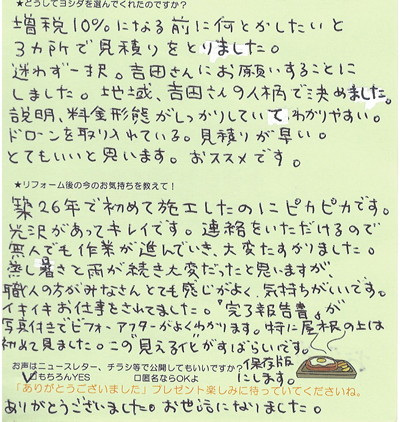 ★どうしてヨシダを選んでくれたのですか?
増税10%になる前に何とかしたいと
3ヵ所で見積りをとりました。
迷わず一択。吉田さんにお願いすることに
しました。地域、吉田さんの人柄で決めました。
説明、料金形態がしっかりしていて、わかりやすい。
ドローンを取り入れている。見積りが早い。
とてもいいと思います。おススメです。
★リフォーム後の今のお気持ちを教えて!
築26年で初めて施工したのにピカピカです。
光沢があってキレイです。連絡をいただけるので
無人でも作業が進んでいき、大変たすかりました。
蒸し暑さと雨が続き大変だったと思いますが、
職人の方がみなさんとても感じがよく気持ちがいいです。
イキイキお仕事をされてました。『完了報告書』が
写真付きでビフォーアフターがよくわかります。特に屋根の上は
初めて見ました。この見える化がすばらしいです。
お声はニュースレター、チラシ等で公開してもいいですか?
保存版
にします。
☑もちろんYES ☐匿名ならOKよ
「ありがとうございました」プレゼント楽しみに待っていてくださいね。
ありがとうございました。お世話になりました。